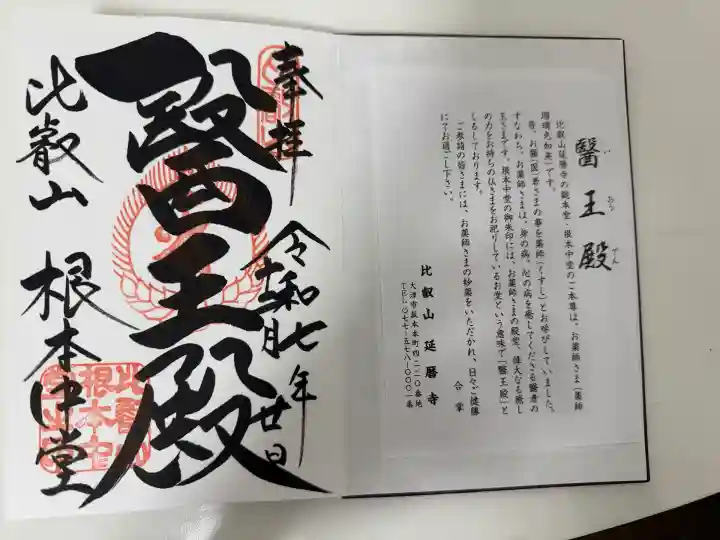 奉拝
令和七年
十一月
廿日
醫王殿
比叡山 根本中堂
い おう でん
醫王殿
比叡山延暦寺の総本堂・根本中堂のご本尊は、お薬師さま（薬師
瑠璃光如来）です。
昔、お醫（医）者さまの事を薬師（くすし）とお呼びしていました。
すなわち、お薬師さまは、身の病、心の病を癒してくださる醫者の
王さまです。根本中堂の御朱印には、お薬師さまの殿堂、偉大なる癒し
の力をお持ちの仏さまをお祀りしているお堂という意味で「醫王殿」と
しるしております。
ご参詣の皆さまには、お薬師さまの妙薬をいただかれ、日々ご健勝
にてお過ごし下さい。
合掌
比叡山延暦寺
大津市坂本本町四二二〇番地
TEL〇七七-五七八-〇〇〇一番